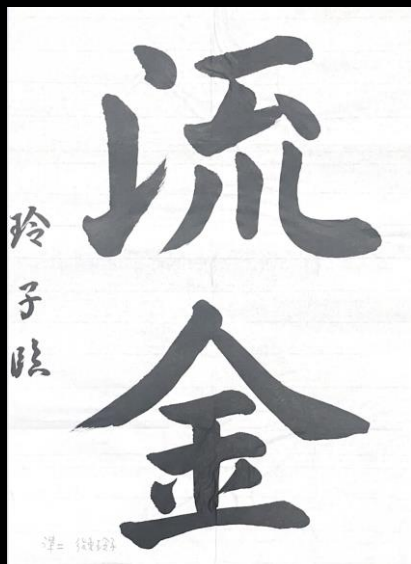 流金
玲子臨